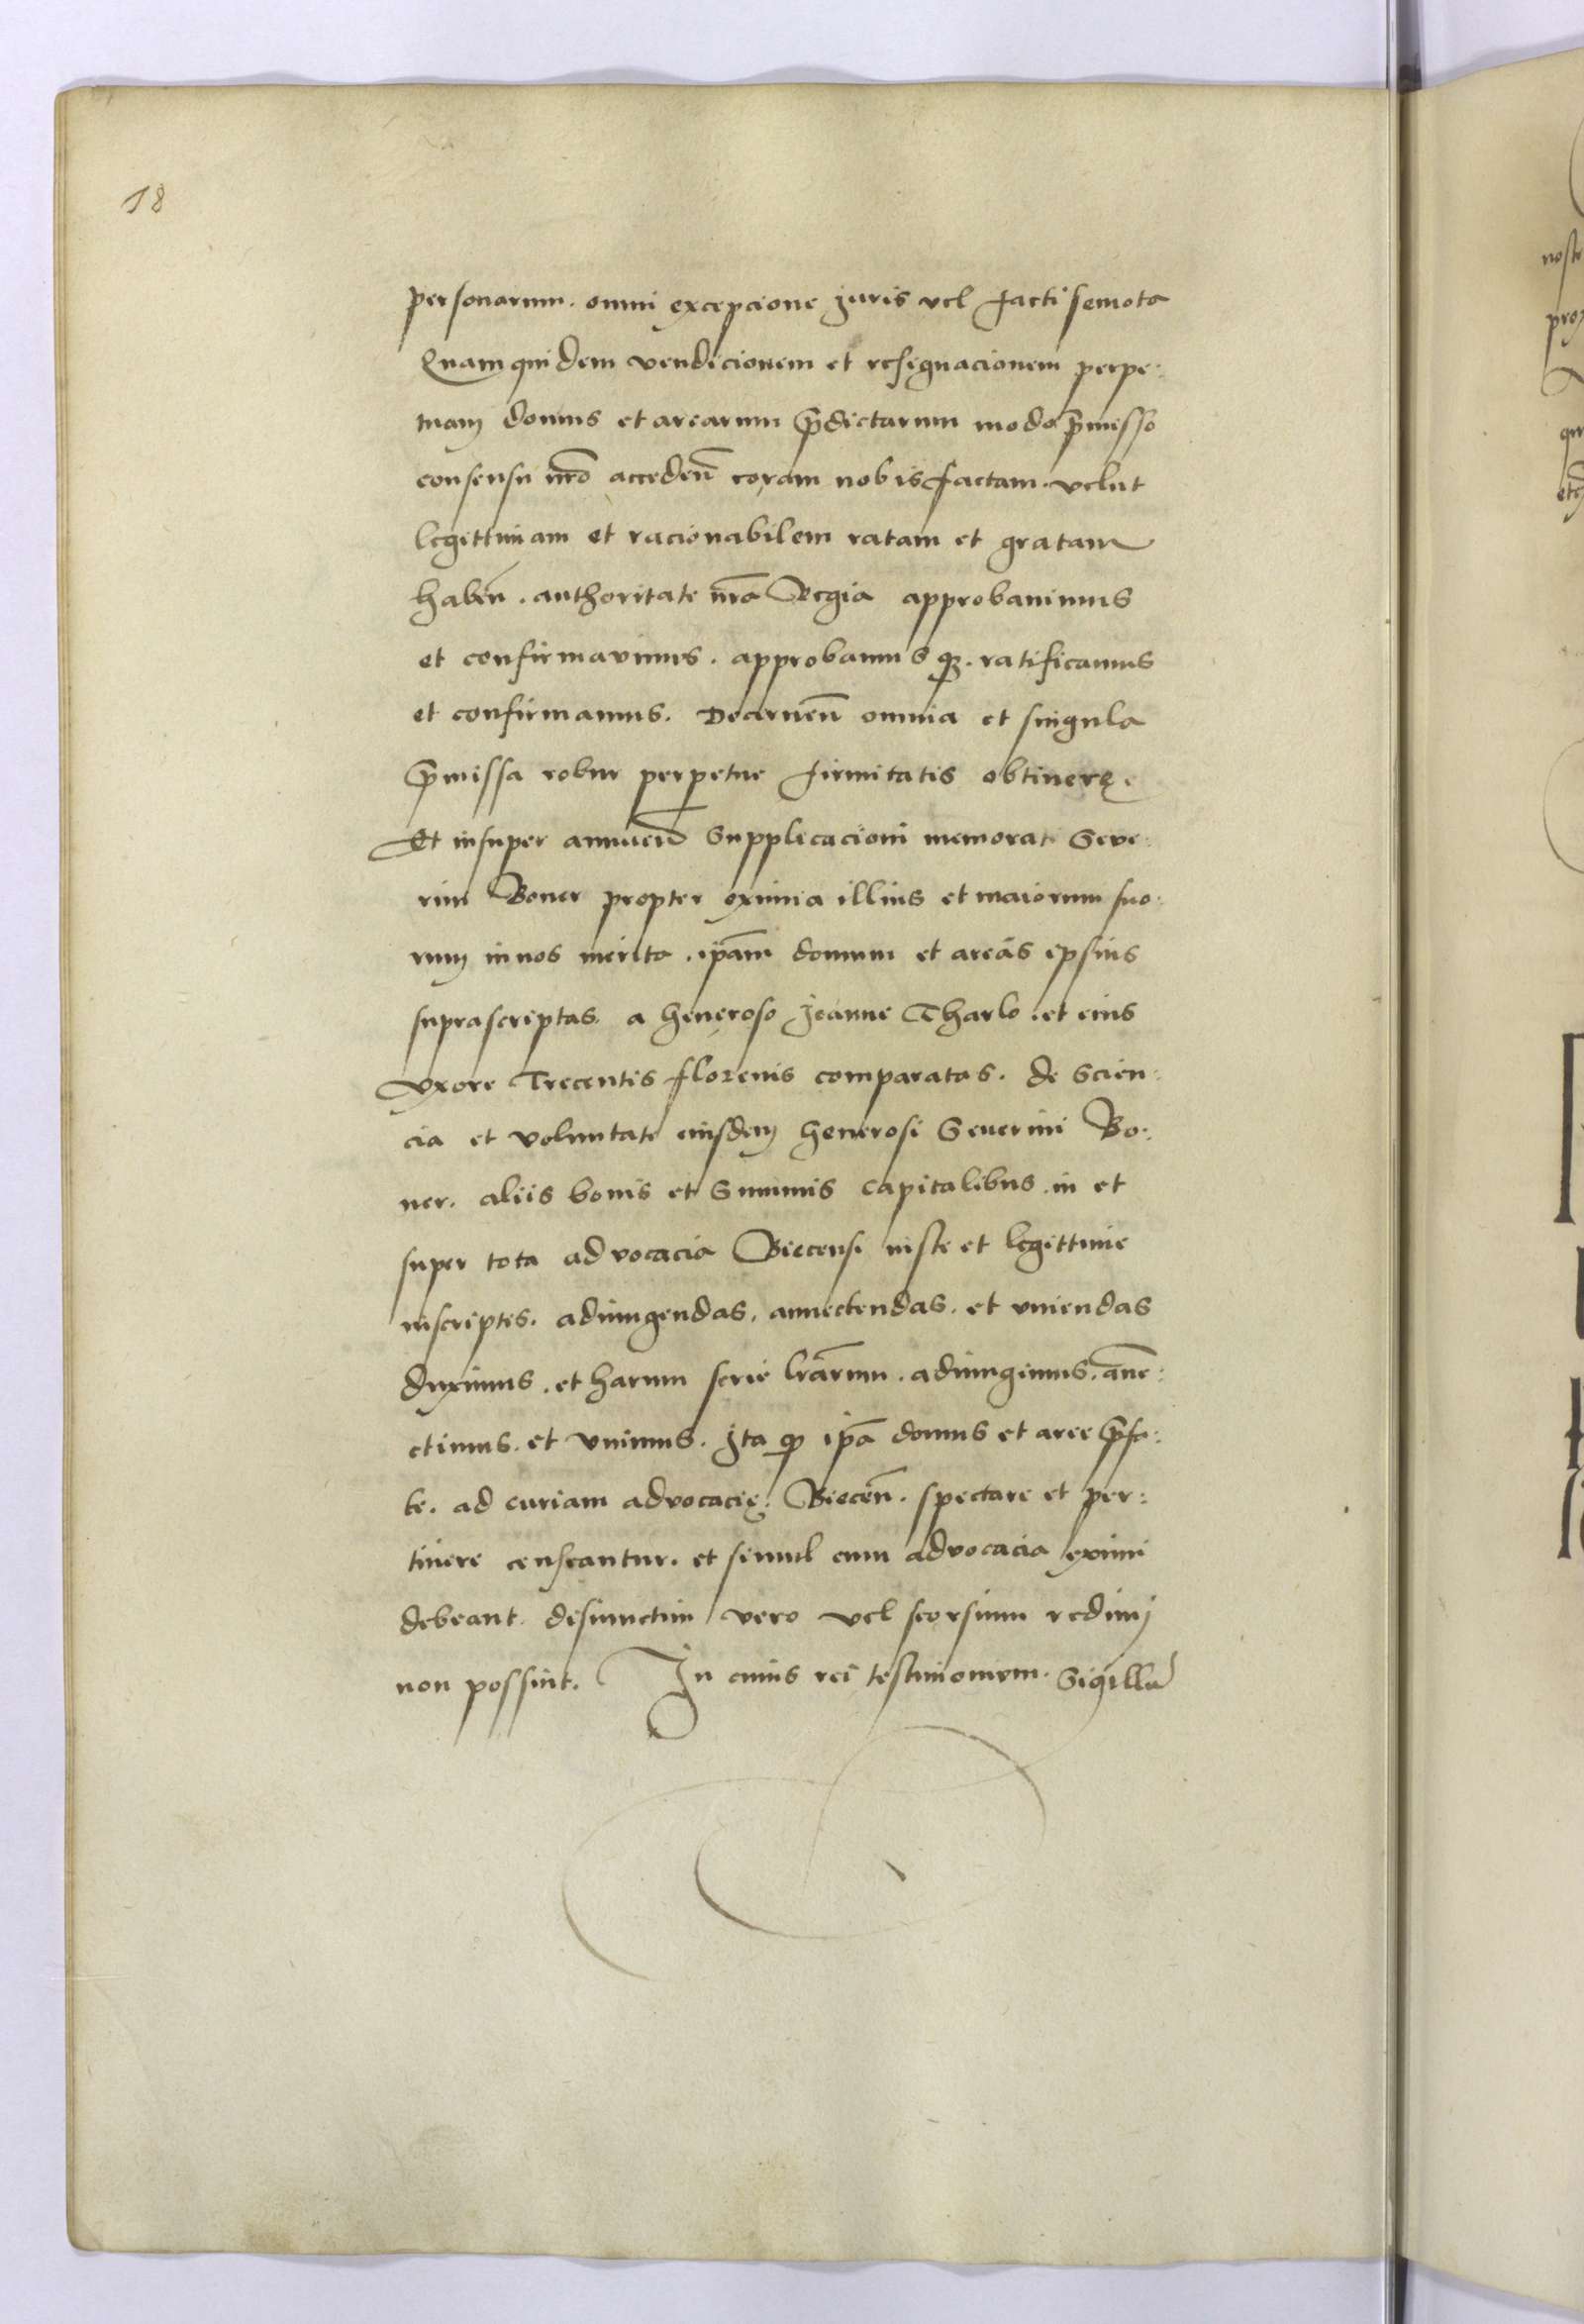 18
personarum. omni excepcione Juris vel facti semota
Quam quidem vendicionem et resignacionem perpe:
tuam domus et arearum p̄dictarum modo p̄misso
consensu nr̄o acceden̄ coram nobis factam. velut
legittimam et racionabilem ratam et gratam
haben̄. authoritate nr̄a Regia approbavimus
et confirmavimus. approbamusq3. ratificamus
et confirmamus. Decernen̄ omnia et singula
p̄missa robur perpetue firmitatis obtinere.
Et insuper annuen̄ Supplicacioni memorati Seve:
rini Boner propter eximia illius et maiorum suo:
rum in nos merita. ip̄am domum et areas ipsius
suprascriptas. a generoso Joanne Tharlo. et eius
vxore Trecentis florenis comparatas. de Scien:
cia et voluntate eiusdem generosi Seuerini Bo:
ner. aliis bonis et Summis capitalibus. in et
super tota advocacia Biecensi iuste et legittime
inscriptis. adiungendas. annectendas. et vniendas
duximus. et harum serie lr̄arum. adiungimus. an̄e:
ctimus. et vnimus. Jta qp ip̄a domus et aree p̄fa:
te. ad curiam advocacię. Biecen̄. spectare et per:
tinere censeantur. et simul cum advocacia eximi
debeant. disiunctim vero vel seorsium redimj
non possint. In cuius rei testimonium. Sigillū
noste
pro
etc